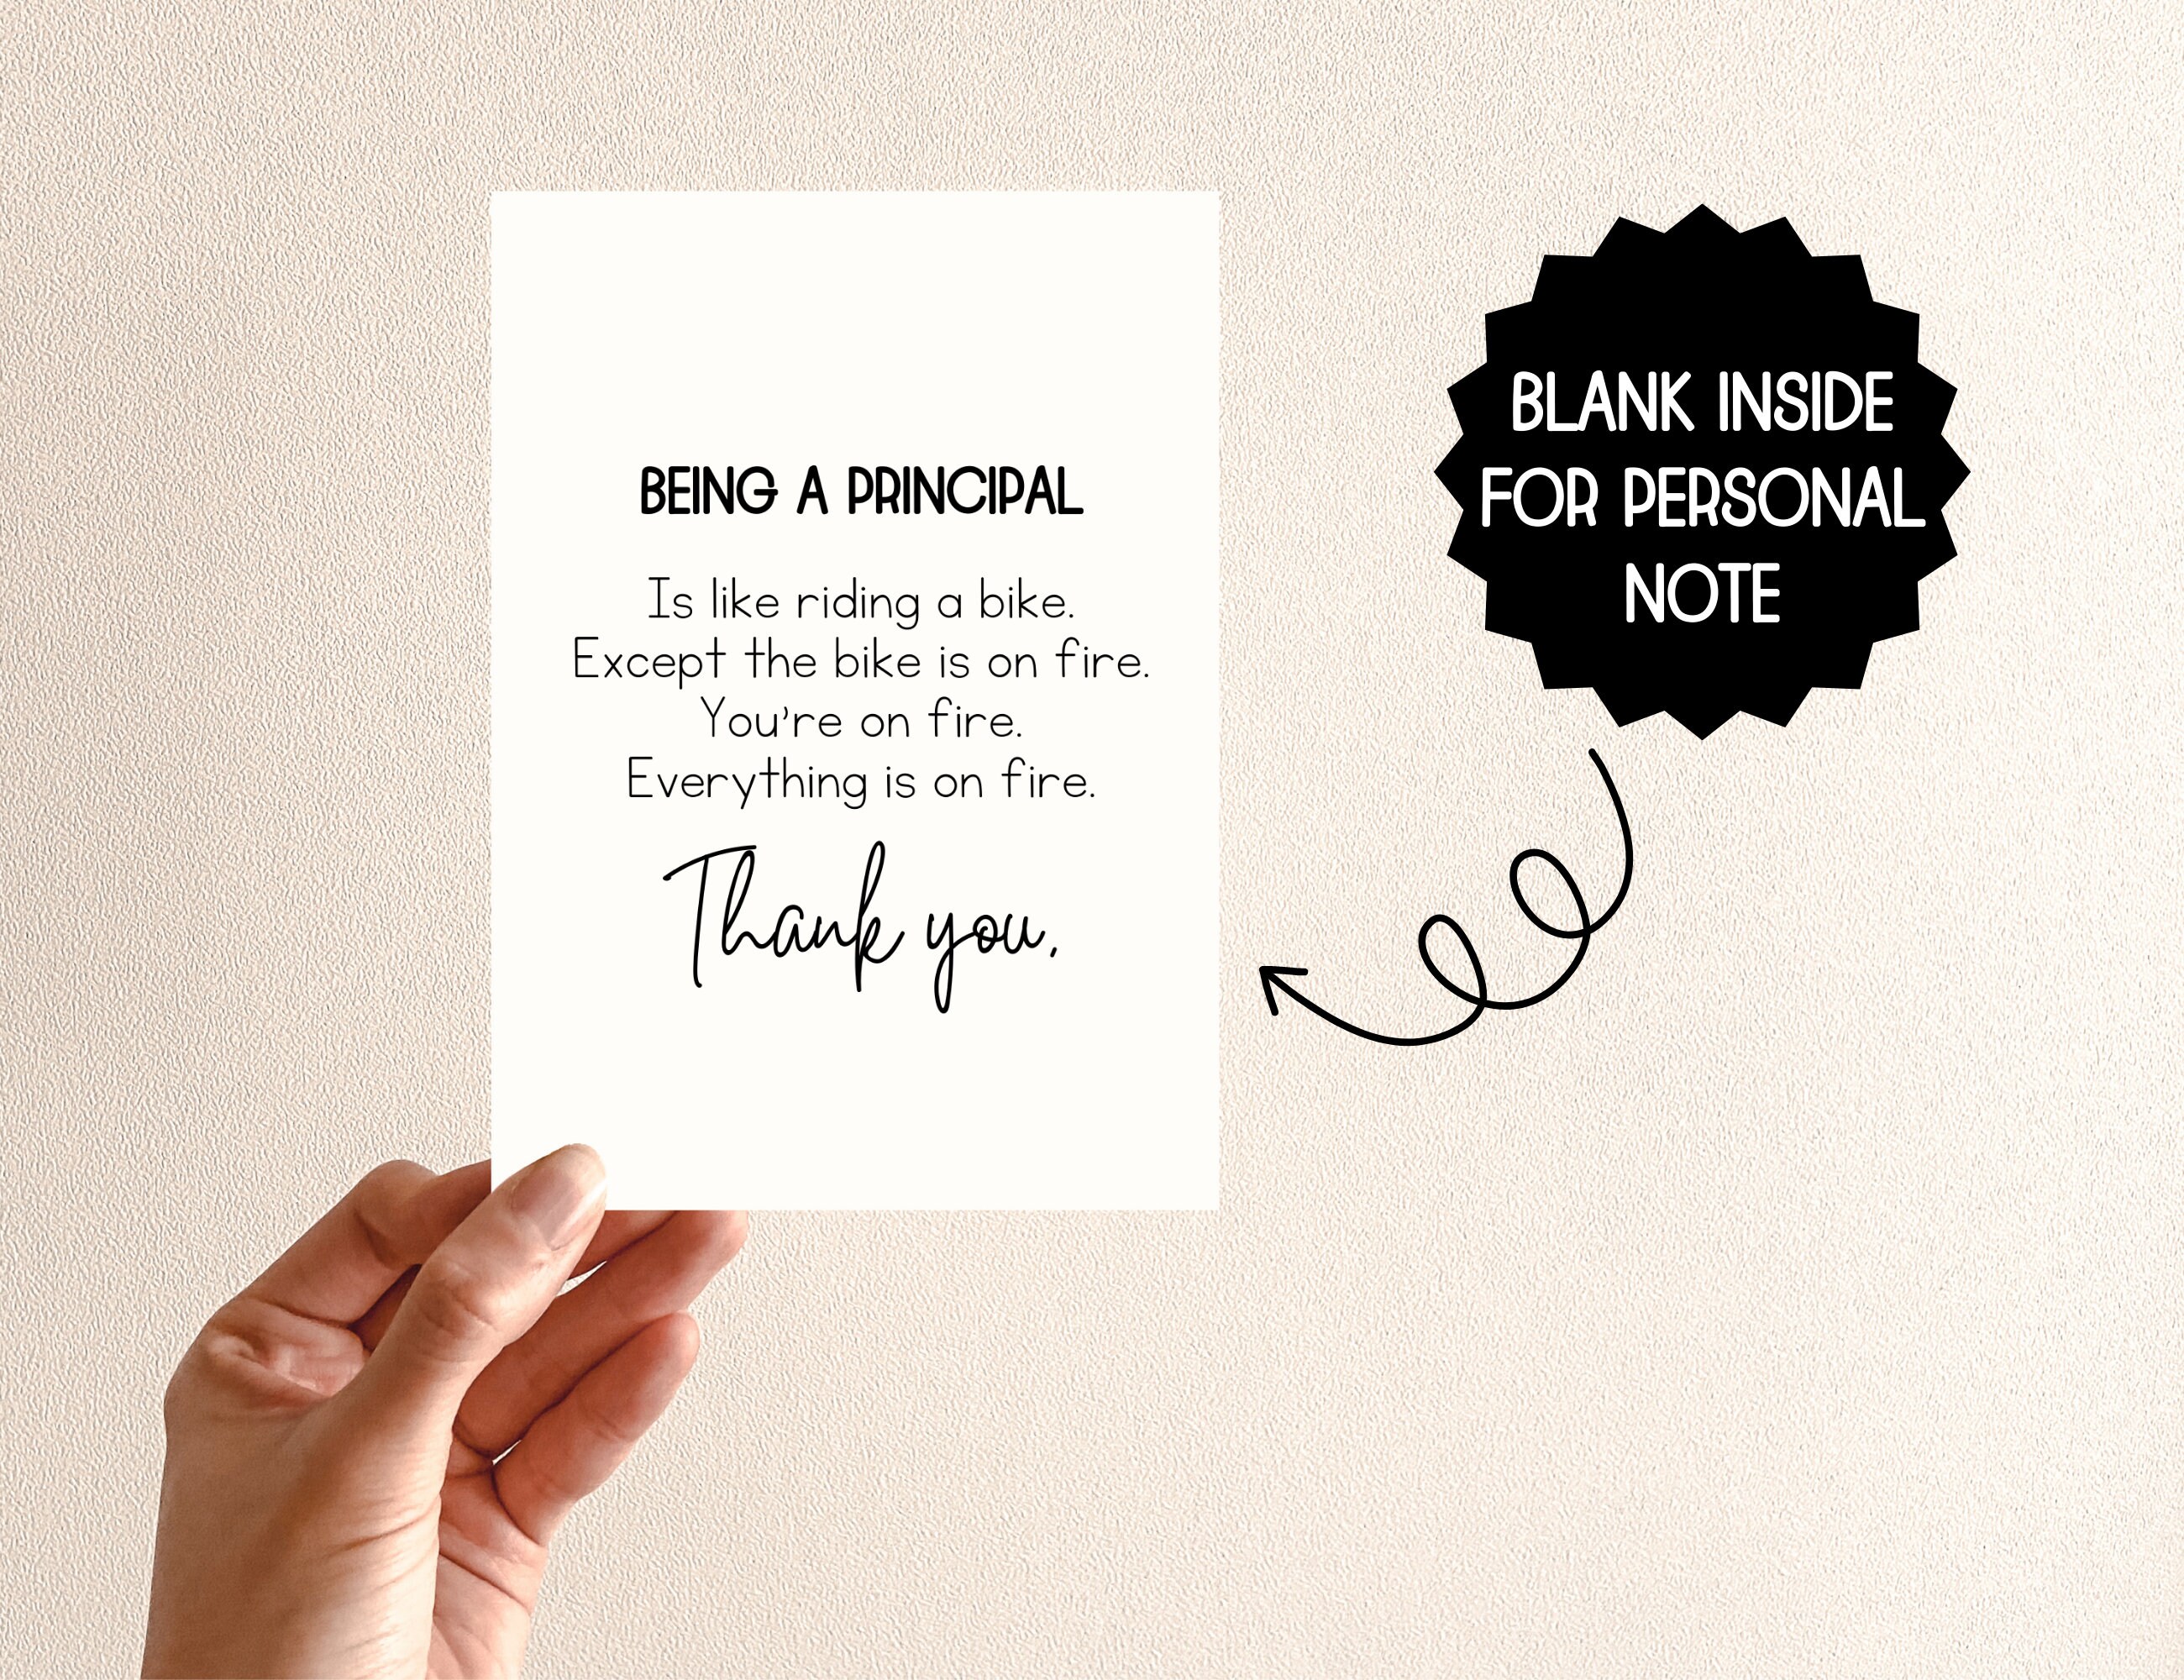 BEING A PRINCIPAL
Is like riding a bike.
Except the bike is on fire.
You're on fire.
Everything is on fire.
Thank you,
BLANK INSIDE
FOR PERSONAL
NOTE